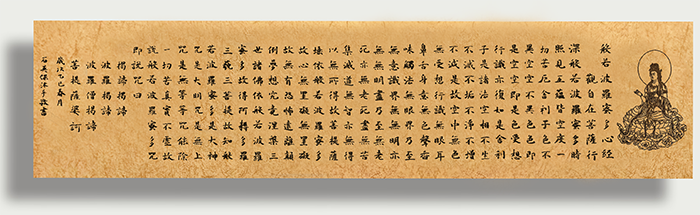 般若波羅蜜多心經
觀自在菩薩行
深般若波羅蜜多時
照見五蘊皆空度一
切苦厄舍利子色不
異空空不異色色即
是空空即是色受想
行識亦復如是舍利
子是諸法空相不生
不滅不垢不淨不增
不減是故空中無色
無受想行識無眼耳
鼻舌身意無色聲香
味觸法無眼界乃至
無意識界無無明亦
無無明盡乃至無老
死亦無老死盡無苦
集滅道無智亦無得
以無所得故菩提薩
埵依般若波羅蜜多
故心無罣礙無罣礙
故無有恐怖遠離顛
倒夢想究竟涅槃三
世諸佛依般若波羅
蜜多故得阿耨多羅
三藐三菩提故知般
若波羅蜜多是大神
咒是大明咒是無上
咒是無等等咒能除
一切苦真實不虛故
說般若波羅蜜多咒
即說咒曰
揭諦揭諦
波羅揭諦
波羅僧揭諦
菩提薩婆訶
歲次乙巳春月
沐手敬書